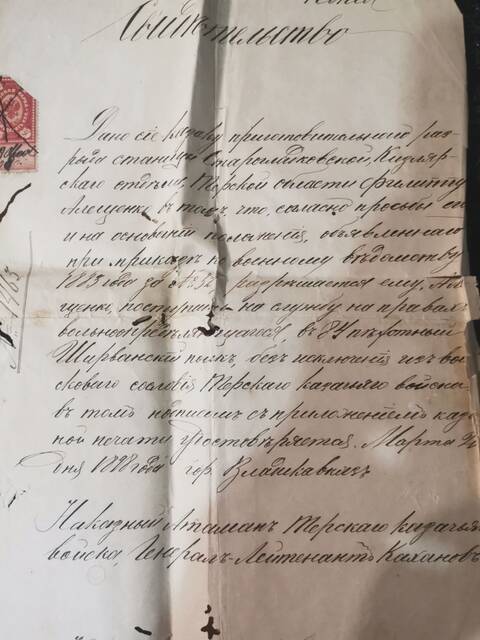 Копія
Свидѣтельство
Дано сіе казаку приготовительнаго раз-
ряда станицы Старощедринской, Кизляр-
скаго отдѣла, Терской области Филиппу
Лещенко въ томъ, что, согласно просьбы его
и на основаніи положенія, объявленнаго
при приказѣ по военному вѣдомству
1883 года за № разрѣшается ему, Ле-
щенко, поступить на службу на правахъ
вольноопредѣляющагося, въ 84 пѣхотный
Ширванскій полкъ, безъ исключенія изъ вой-
сковаго сословія Терскаго казачьяго войска
въ томъ подписью съ приложеніемъ казен-
ной печати удостовѣряется. Марта
дня 1888 года гор. Владикавказъ
Наказный Атаманъ Терскаго казачьяго
войска, Генералъ-Лейтенантъ Кахановъ